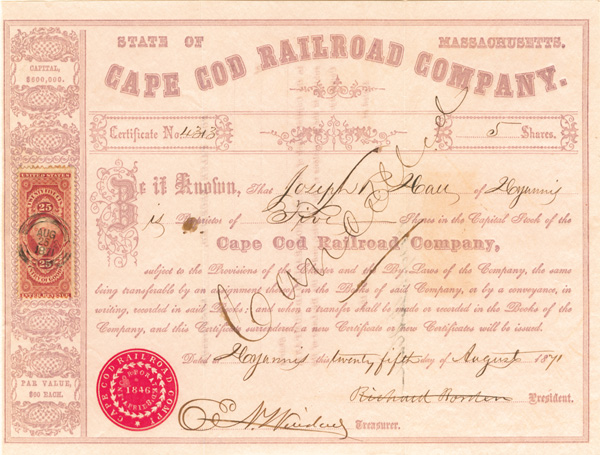 STATE OF MASSACHUSETTS.
CAPE COD RAILROAD COMPANY.
CAPITAL,
$600,000.
Certificate No. 4313
5 Shares.
Be it Known, That Joseph N Hall of Hyannis
is Proprietor of Five Shares in the Capital Stock of the
Cape Cod Railroad Company,
subject to the Provisions of the Charter and the By-Laws of the Company, the same
being transferable by an assignment thereof in the Books of said Company, or by a conveyance, in
writing, recorded in said Books; and when a transfer shall be made or recorded in the Books of the
Company, and this Certificate surrendered, a new Certificate or new Certificates will be issued.
Dated at Hyannis this twenty fifth day of August 1871
Richard Borden President.
Treasurer.
Cancelled
25
AUG
PAR VALUE,
EACH.
CAPE COD RAILROAD COMP
INCORPORATED
1846